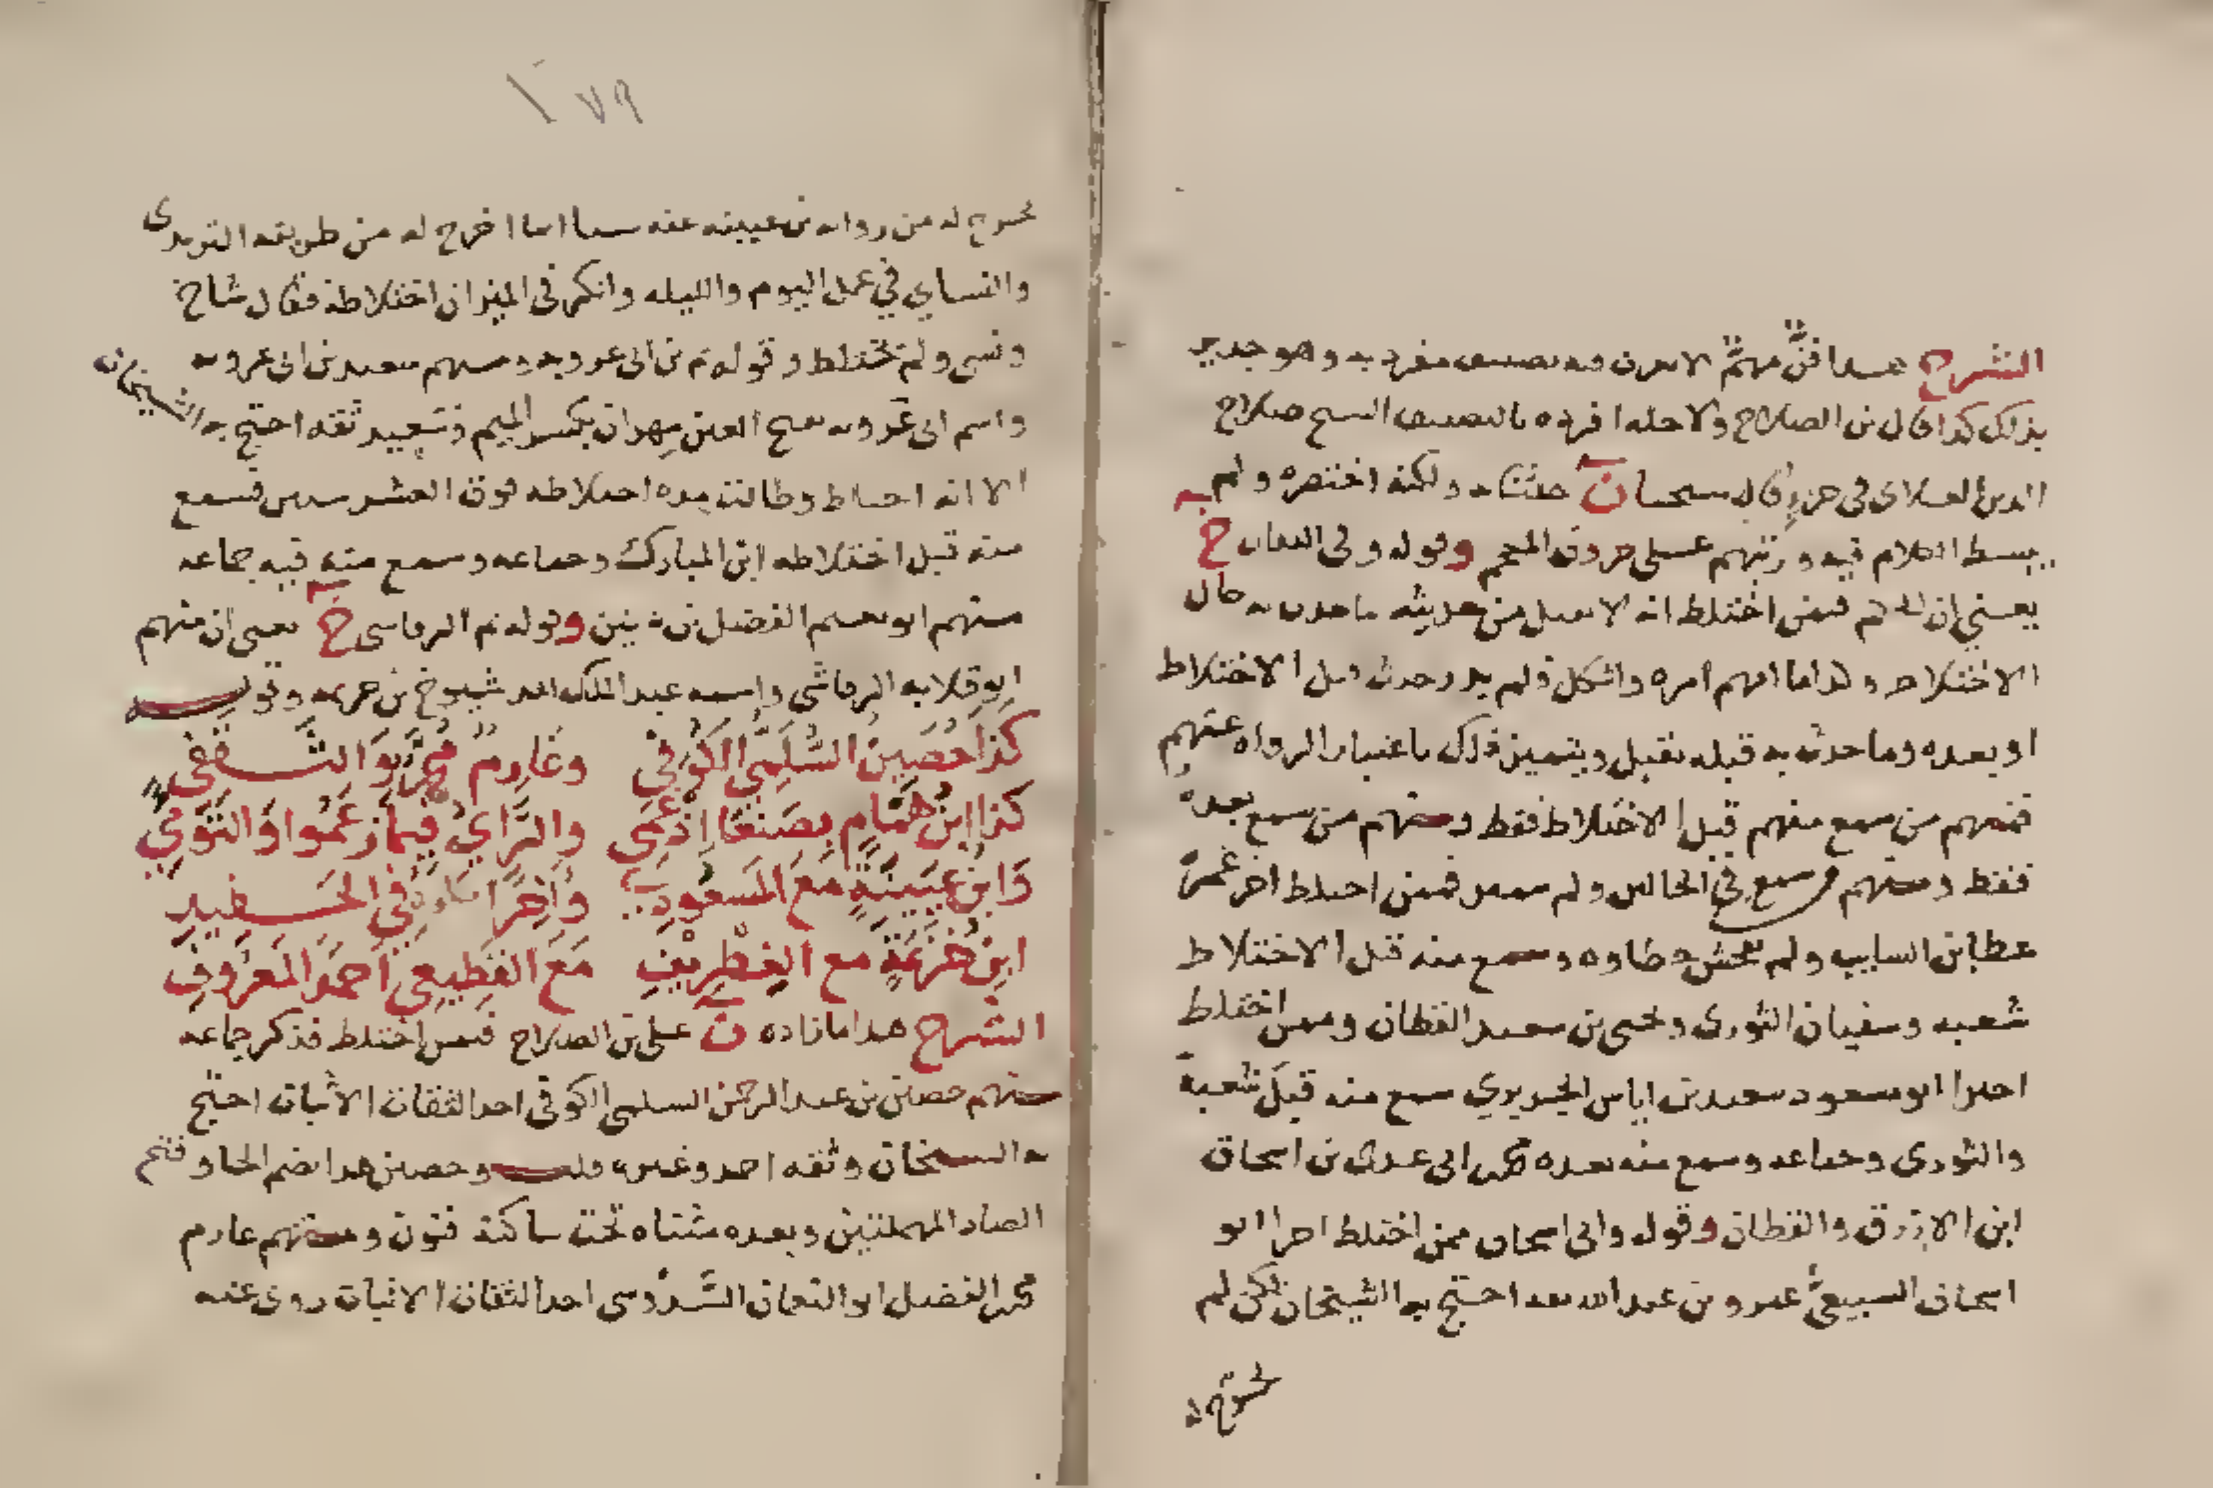 الشرح هذا فن مهم لا يعرف فيه تصنيف مفرد به وهو جدير
بذلك كذا قال بن الصلاح ولاجله افرده بالتصنيف الشيخ صلاح
الدين العلاي في جزء قال سمعنا ن حدثنا به ولكنه اختصره ولم
يبسط الكلام فيه ورتبهم على حروف المعجم وقوله وفي الثقات خ
يعني ان الحكم فيمن اختلط انه لا يقبل من حديثه ما حدث به حال
الاختلاط وكذا ما ابهم امره واشكل فلم يدر حدث قبل الاختلاط
او بعده وما حدث به قبله يقبل ويتميز ذلك باعتبار الرواه عنهم
فمنهم من سمع منهم قبل الاختلاط فقط ومنهم من سمع بعده
فقط ومنهم من سمع في الحالين ولم يتميز فممن اختلط اخر عمره
عطا بن السايب ولم يفحش خطاوه وسمع منه قبل الاختلاط
شعبه وسفيان الثوري ويحيى بن سعيد القطان وممن اختلط
اخيرا ابو مسعود سعيد بن اياس الجريري سمع منه قبل شعبة
والثوري وجماعه وسمع منه بعده محمد ابي عدي بن اسحاق
ابن الازرق والقطان وقوله وابي اسحاق ممن اختلط اخرا ابو
اسحاق السبيعي عمرو بن عبد الله ثقه احتج به الشيخان لكن لم
يخرج له
١٧٩
يخرج له من رواية بن عيينه عنه شيا انما اخرج له من طريقه الترمذي
والنساي في عمل اليوم والليله وانكر في الميزان اختلاطه فقال شاخ
ونسي ولم يختلط وقوله ثم بن ابي عروبه ومنهم سعيد بن ابي عروبه
واسم ابي عروبه بفتح العين مهران بكسر الميم وسعيد ثقه احتج به الشيخان
الا انه اختلط وطالت مده اختلاطه فوق العشر سنين فسمع
منه قبل اختلاطه ابن المبارك وجماعه وسمع منه فيه جماعه
منهم ابو نعيم الفضل بن دكين وقوله ثم الرقاشي خ يعني ان منهم
ابو قلابه الرقاشي واسمه عبد الملك احد شيوخ بن خزيمه وقوله
كذا حصين السلمي الكوفي وعارم محمد والثقفي
كذا ابن همام بصنعا اذ عمي والراي فيما زعموا والتومي
وابن عيينة مع المسعودي واخرا حكوه في الحفيد
ابن خزيمة مع الغطريف مع القطيعي احمد المعروف
الشرح هذا ما زاده ن على بن الصلاح فيمن اختلط فذكر جماعه
منهم حصين بن عبد الرحمن السلمي الكوفي احد الثقات الاثبات احتج
به الشيخان وثقه احمد وغيره قلت وحصين هذا بضم الحا وفتح
الصاد المهملتين وبعده مثناه تحت ساكنة فنون ومنهم عارم
محمد الفضل ابو النعمان السدوسي احد الثقات الاثبات روى عنه